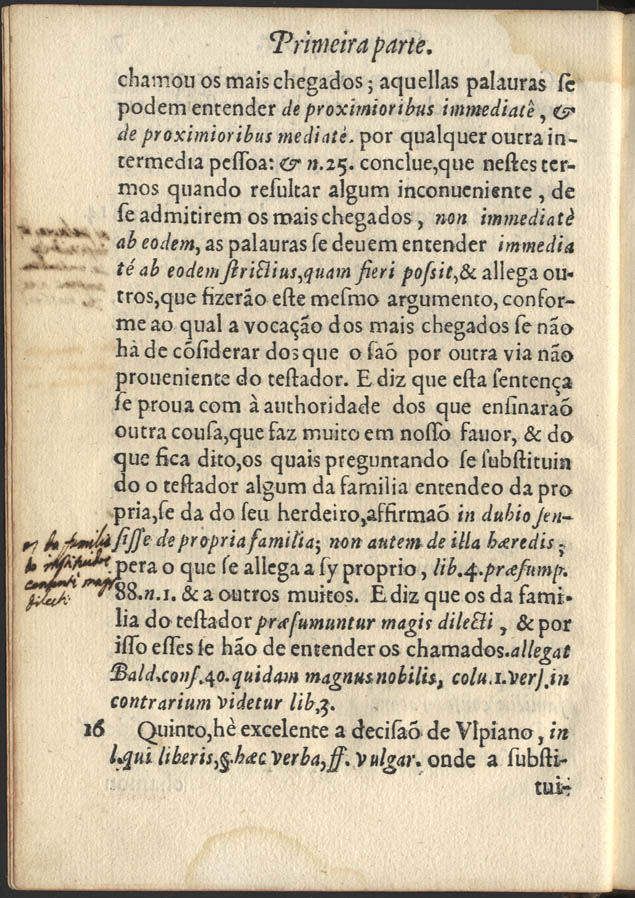 Primeira parte.
chamou os mais chegados; aquellas palauras ſe
podem entender de proximioribus immediatè, &
de proximioribus mediatè. por qualquer outra in-
termedia peſſoa: & n.25. conclue,que neſtes ter-
mos quando reſultar algum inconueniente, de
ſe admitirem os mais chegados, non immediatè
ab eodem, as palauras ſe deuem entender immedia
té ab eodem ſtrictius,quam fieri poſsit,& allega ou-
tros,que fizerão eſte meſmo argumento, confor-
me ao qual a vocação dos mais chegados ſe não
hà de cõſiderar dos que o ſaõ por outra via não
proueniente do teſtador. E diz que eſta ſentença
ſe proua com à authoridade dos que enſinaraõ
outra couſa,que faz muito em noſſo fauor, & do
que fica dito,os quais preguntando ſe ſubſtituin
do o teſtador algum da familia entendeo da pro
pria,ſe da do ſeu herdeiro,affirmaõ in dubio ſen-
ſiſſe de propria familia; non autem de illa hæredis;
pera o que ſe allega a ſy proprio, lib.4.præſump.
88.n.1. & a outros muitos. E diz que os da fami-
lia do teſtador præſumuntur magis dilecti, & por
iſſo eſſes ſe hão de entender os chamados.allegat
Bald.conſ.40.quidam magnus nobilis, colu.1.verſ.in
contrarium videtur lib.3.
16 Quinto,hè excelente a deciſaõ de Vlpiano, in
l.qui liberis,§.hæc verba,ff. vulgar. onde a ſubſti-
tui-
da familia
do
magis
dilecti